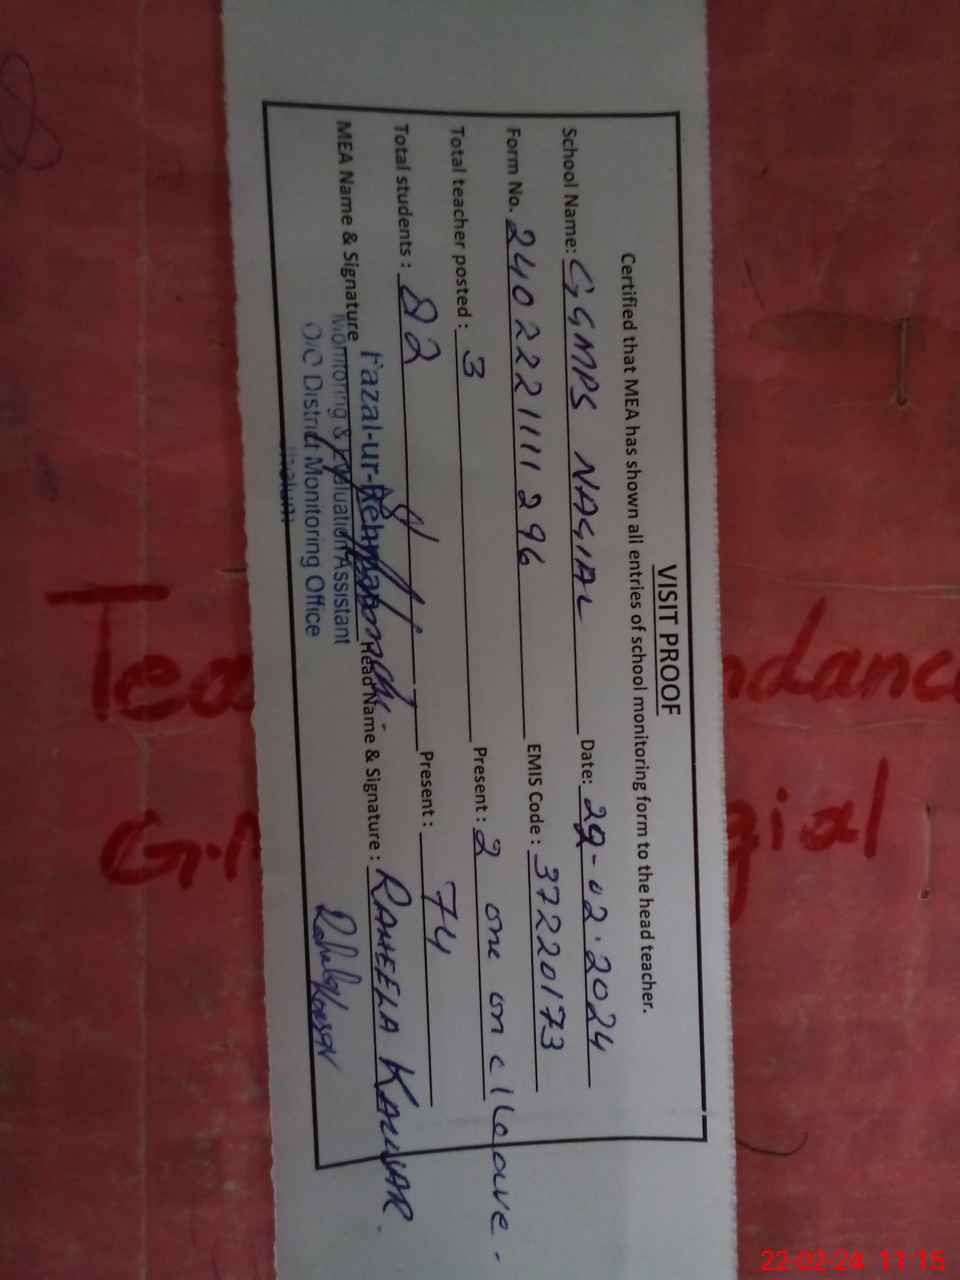 VISIT PROOF
Certified that MEA has shown all entries of school monitoring form to the head teacher.
School Name: GGMPS NAGIAL Date: 22-02-2024
Form No. 240222111296 EMIS Code: 37220173
Total teacher posted: 3 Present: 2 one on c/leave.
Total students: 82 Present: 74
MEA Name & Signature Fazal-ur-Rehman Head Name & Signature: RAHEELA KAUSAR.
Monitoring & Evaluation Assistant
O/C District Monitoring Office
Jhelum
Tea ndance
G. gial
22-02-24 11:15